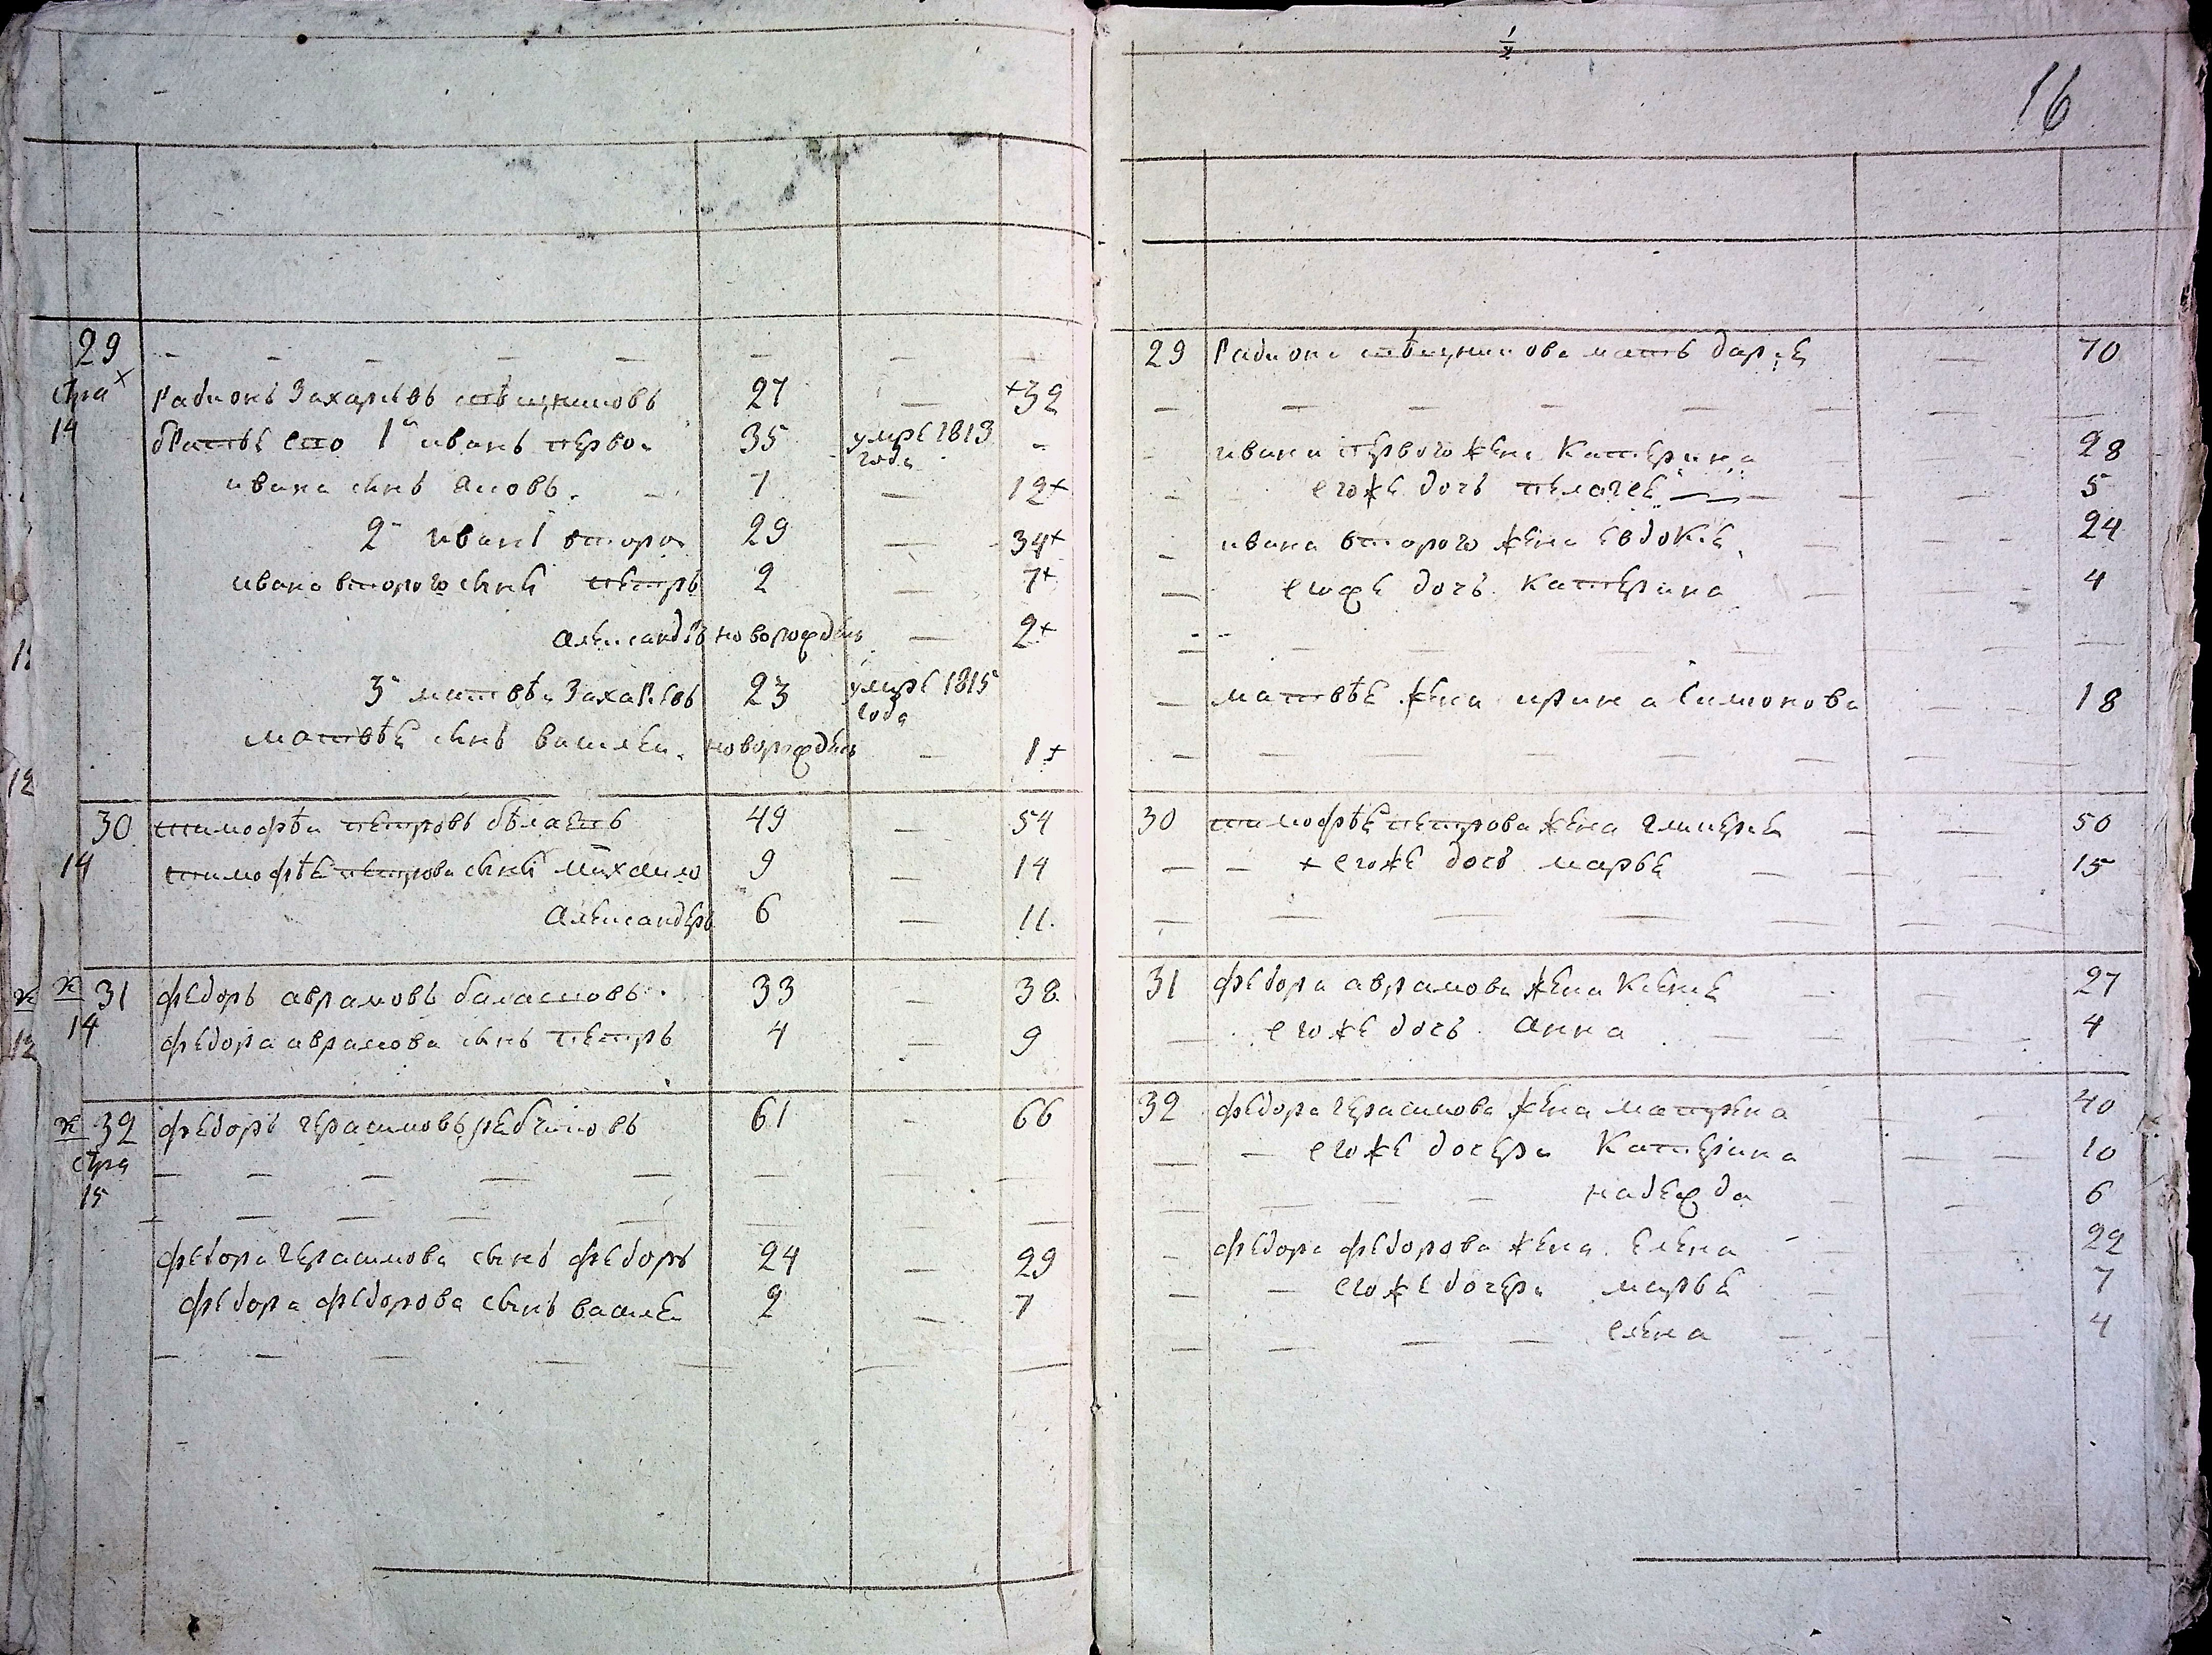 1/2
16
29 - - - - - - - -
стра Радионъ Захаровъ 27 — +32
14 братье ево 1й иванъ первои 35 умре 1813 года -
ивана сынъ 7 — 12+
2й иванъ второи 29 — 34+
ивана второго сынъ петръ 2 — 7+
Александръ новорожденъ — 2+
3й матвѣи Захаровъ 23 умре 1815 года
матвѣе сынъ василеи новорожденъ — 1+
30 тимофѣи петровъ 49 — 54
14 тимофѣе петрова сынъ михаило 9 — 14
Александеръ 6 — 11.
31 федоръ аврамовъ балашовъ 33 — 38
14 федора аврамова сынъ петръ 4 — 9
32 федоръ герасимовъ 61 - 66
стра — — — — — — — —
15
федора герасимова сынъ федоръ 24 — 29
федора федорова сынъ василеи 2 — 7
29 Радиона мать дарье — 70
ивана первого жена Катерина 28
егоже дочь пелагее 5
ивана второго жена Евдокѣе 24
егоже дочь Катерина 4
матвѣе жена ирина Симонова 18
30 тимофѣе петрова жена гликерее 50
+ егоже дочь марье 15
31 федора аврамова жена 27
егоже дочь Анна 4
32 федора герасимова жена матрена 40
егоже дочери Катерина 10
надежда 6
федора федорова жена Елена 22
егоже дочери марье 7
елена 4